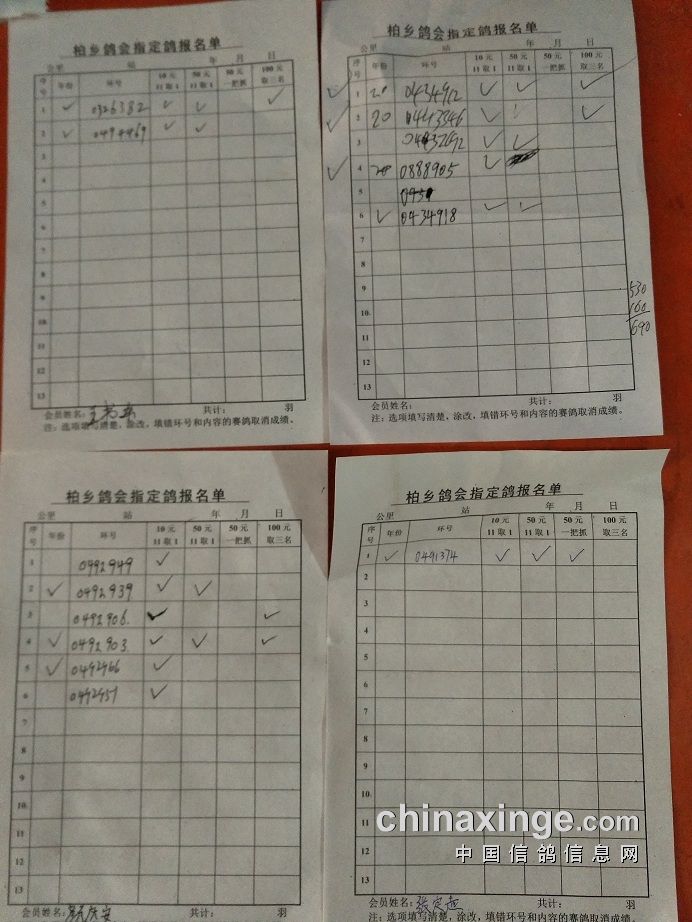 柏乡鸽会指定鸽报名单
公里 站 年 月 日
序号 年份 环号 10元11取1 50元11取1 50元一把抓 100元取三名
1 ✓ 0326382 ✓ ✓ ✓
2 ✓ 0494469 ✓ ✓
3
4
5
6
7
8
9
10
11
12
13
会员姓名: 共计: 羽
注:选项填写清楚,涂改,填错环号和内容的赛鸽取消成绩。
柏乡鸽会指定鸽报名单
公里 站 年 月 日
序号 年份 环号 10元11取1 50元11取1 50元一把抓 100元取三名
✓ 1 20 0434912 ✓ ✓ ✓
✓ 2 20 0443346 ✓ ✓ ✓
3 ✓ ✓
✓ 4 20 0888905 ✓
5
6 ✓ 0434918 ✓ ✓
7
8
9
10
11
12
13
530
160
690
会员姓名: 共计: 羽
注:选项填写清楚,涂改,填错环号和内容的赛鸽取消成绩。
柏乡鸽会指定鸽报名单
公里 站 年 月 日
序号 年份 环号 10元11取1 50元11取1 50元一把抓 100元取三名
1 0492949 ✓
2 ✓ 0492939 ✓ ✓
3 0492906. ✓ ✓
4 ✓ 0492903. ✓ ✓ ✓
5 ✓ 0492966 ✓
6 0492957 ✓
7
8
9
10
11
12
13
会员姓名: 共计: 羽
柏乡鸽会指定鸽报名单
公里 站 年 月 日
序号 年份 环号 10元11取1 50元11取1 50元一把抓 100元取三名
1 ✓ 0491374 ✓ ✓ ✓
2
3
4
5
6
7
8
9
10
11
12
13
会员姓名: 共计: 羽
注:选项填写清楚,涂改,填错环号和内容的赛鸽取消成绩。
chinaxinge.com
中国信鸽信息网